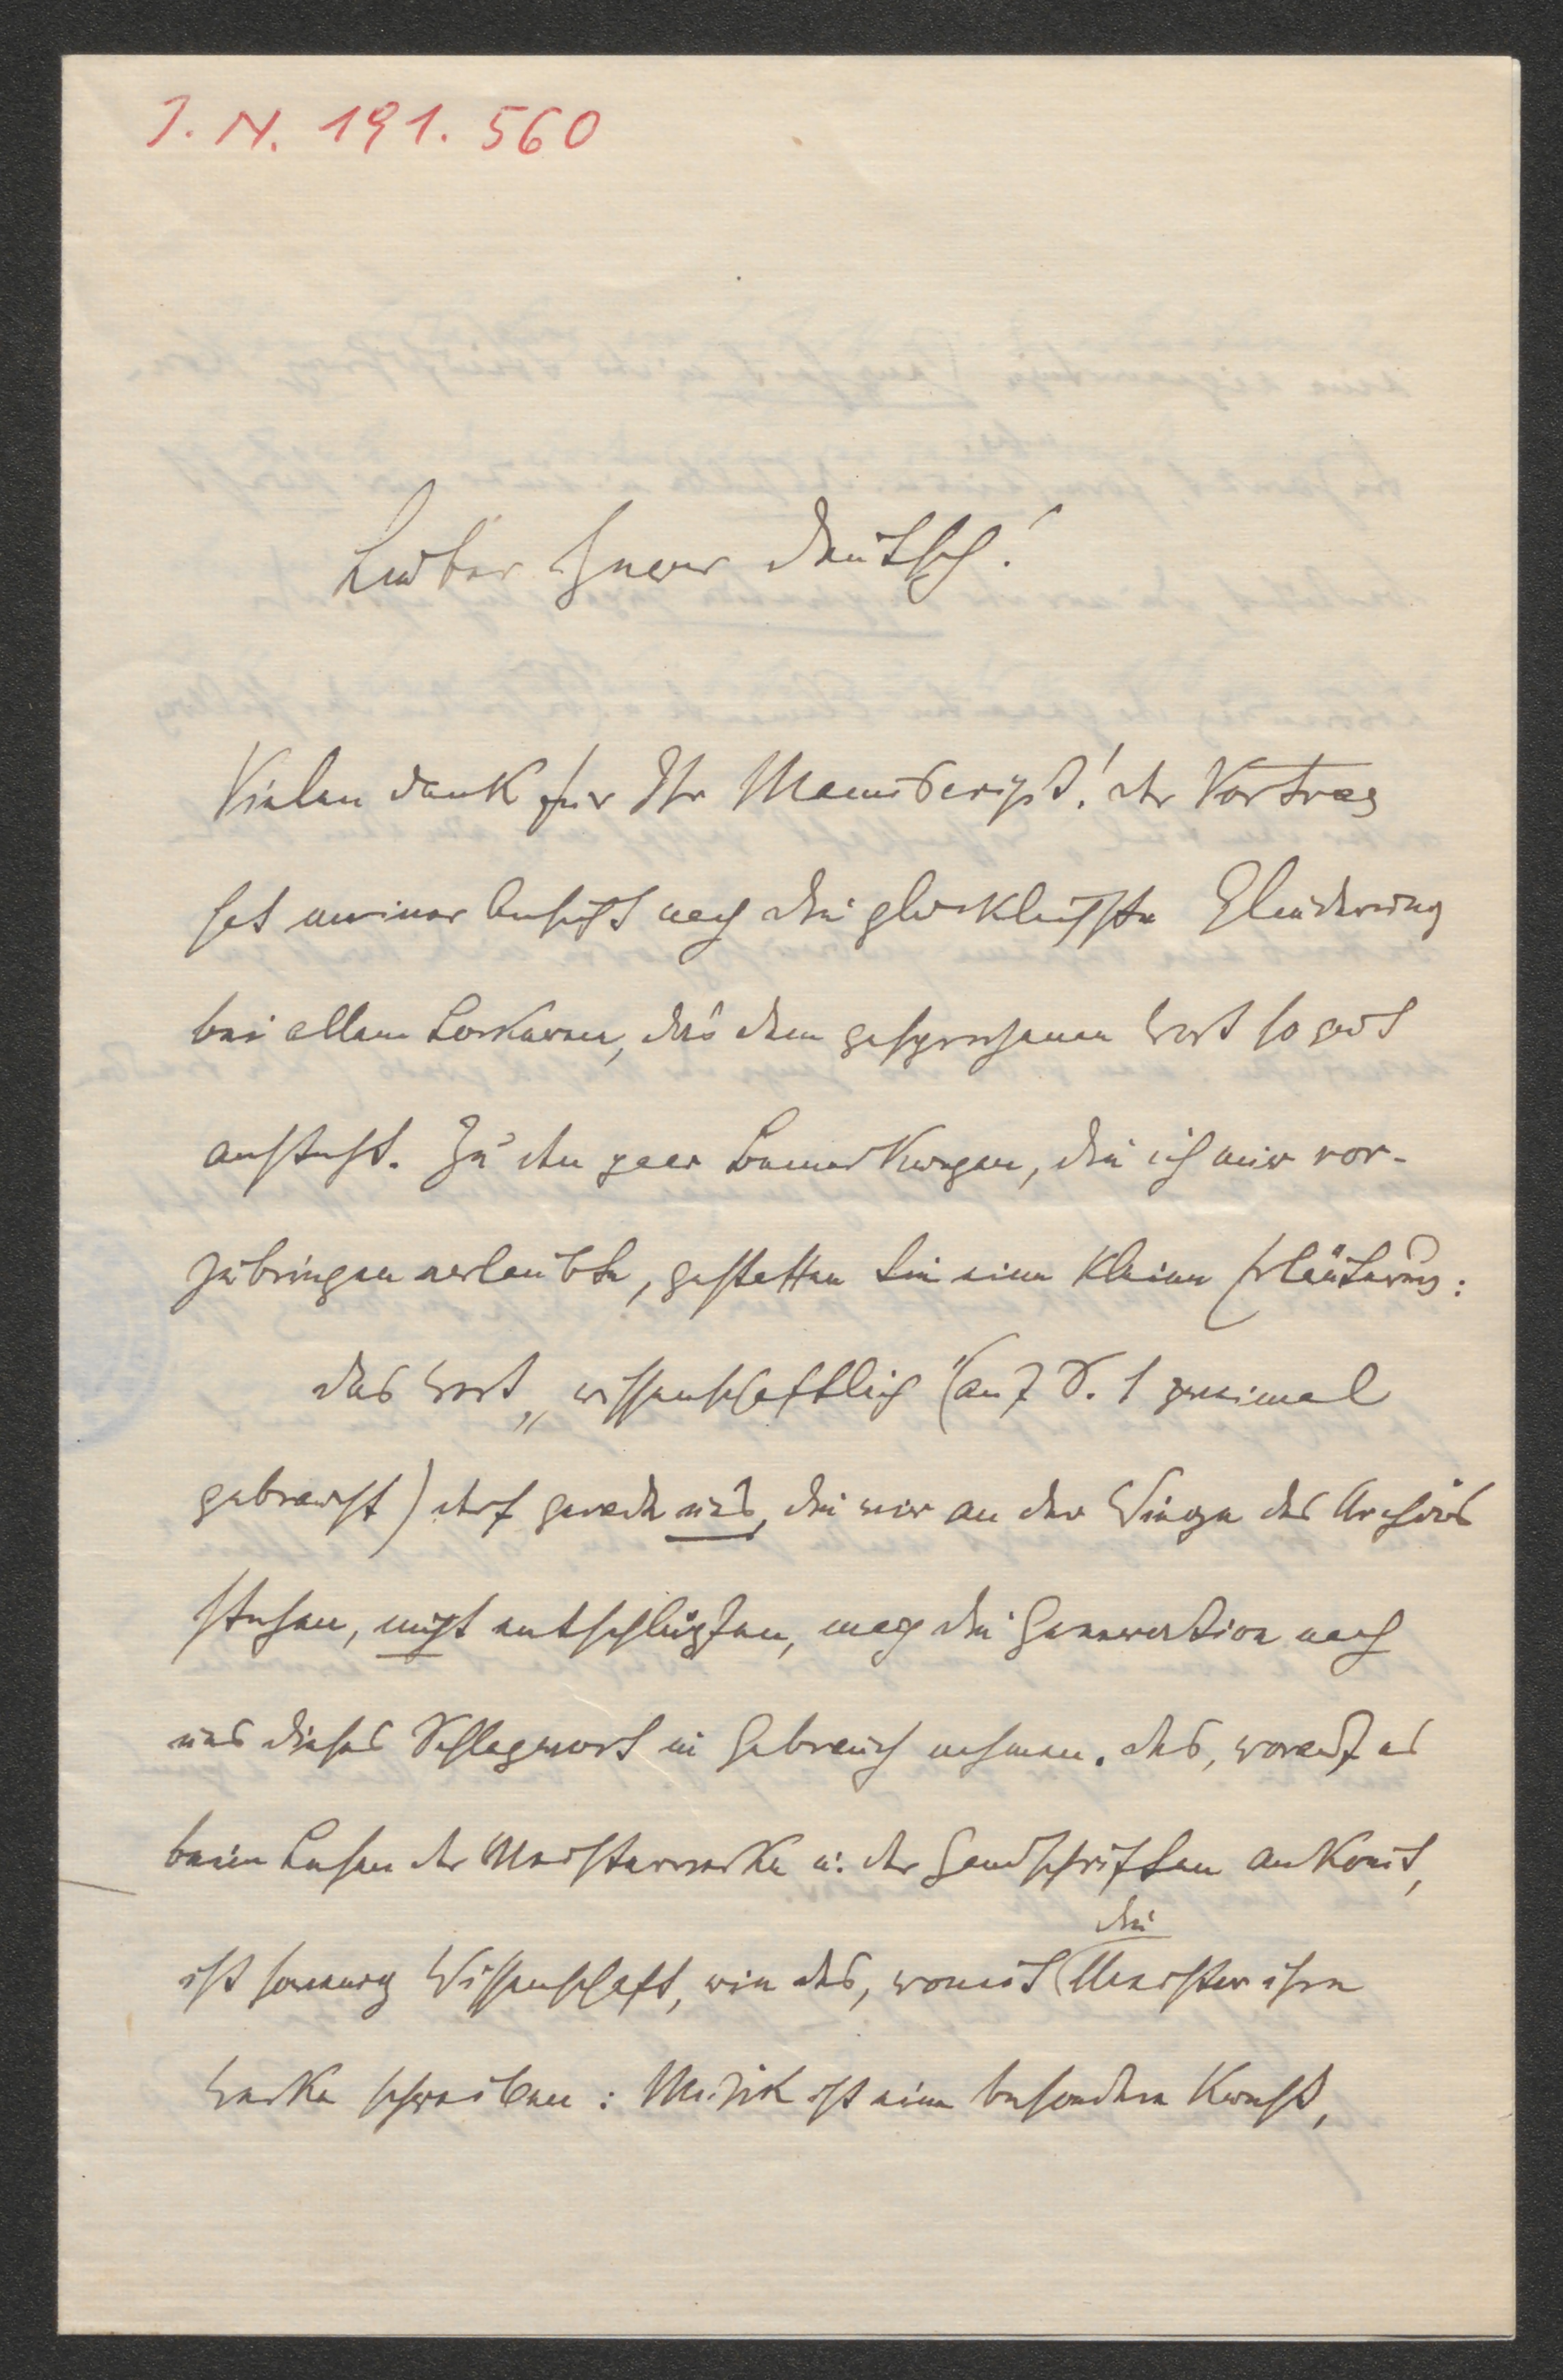 I. N. 191.560
Lieber Herr Deutsch!
Vielen Dank für Ihr Manuscript! Der Vortrag
hat meiner Ansicht nach die glücklichste Gliederung
bei allem Lockeren, das dem gesprochenen Wort so gut
ansteht. Zu den paar Bemerkungen, die ich mir vor-
zubringen erlaubte, gestatten Sie eine kleine Erläuterung:
Das Wort „wissenschaftlich“ (auf S. 1 zweimal
gebraucht) darf gerade uns, die wir an der Wiege des Archivs
stehen, nicht entschlüpfen, mag die Generation nach
uns dieses Schlagwort in Gebrauch nehmen. Das, worauf es
beim Lesen der Meisterwerke u. der Handschriften ankomt,
ist sowenig Wissenschaft, wie das, womit die Meister ihre
Werke schreiben: Musik ist eine besondere Kunst,